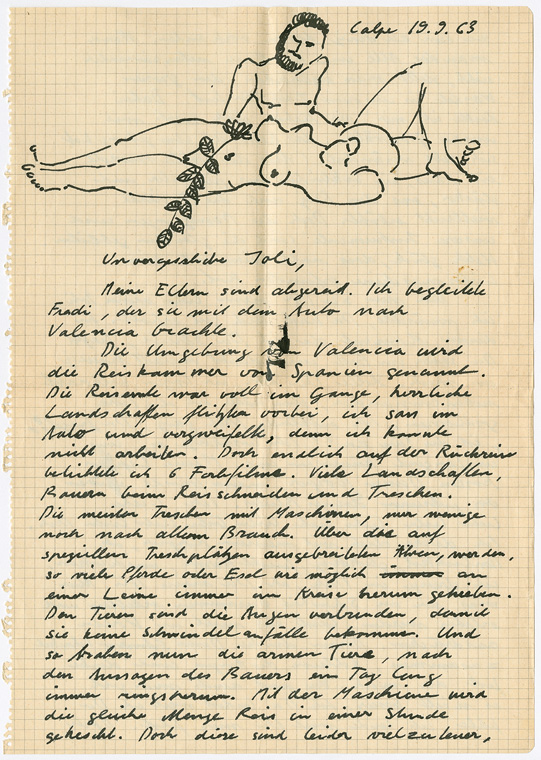 Calpe 19.9.63
Unvergessliche Joli,
Meine Eltern sind abgereist. Ich begleitete
Fredi, der sie mit dem Auto nach
Valencia brachte.
Die Umgebung von Valencia wird
die Reiskammer von Spanien genannt.
Die Reisernte war voll im Gange, herrliche
Landschaften flitzten vorbei, ich sass im
Auto und verzweifelte, denn ich konnte
nicht arbeiten. Doch endlich auf der Rückreise
belichtete ich 6 Farbfilme. Viele Landschaften,
Bauern beim Reisschneiden und Treschen.
Die meisten Treschen mit Maschinen, nur wenige
noch nach altem Brauch. Über die auf
speziellen Treschplätzen ausgebreiteten Ähren, werden,
so viele Pferde oder Esel wie möglich immer an
einer Leine immer im Kreise herum getrieben.
Den Tieren sind die Augen verbunden, damit
sie keine Schwindelanfälle bekommen. Und
so traben nun die armen Tiere, nach
den Aussagen des Bauers ein Tag lang
immer ringsherum. Mit der Maschine wird
die gleiche Menge Reis in einer Stunde
gedrescht. Doch diese sind leider viel zu teuer,